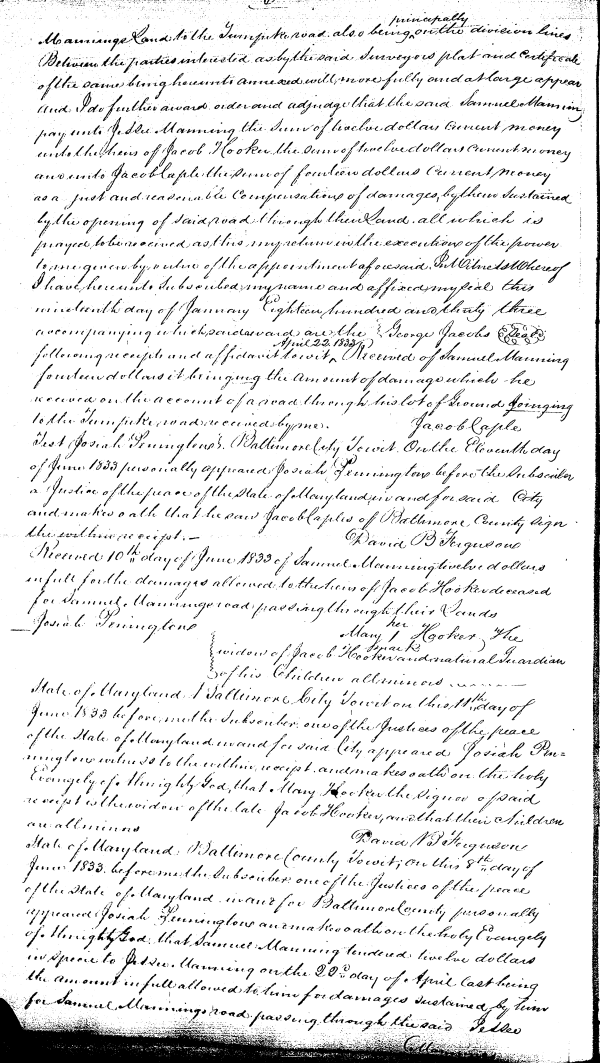 principally
Mannings Land to the Turnpike road also being on the division lines
Between the parties interested as by the said Surveyors plat and certificate
of the same being hereunto annexed will more fully and at large appear
and I do further award order and adjudge that the said Samuel Manning
pay unto Jesse Manning the Sum of twelve dollars current money
unto the heirs of Jacob Hooker the sum of twelve dollars current money
and unto Jacob Caple the sum of fourteen dollars Current money
as a just and reasonable Compensations of damages, by them Sustained
by the opening of said road through their Land. all which is
prayed to be received as this my return in the execution of the power
to me given by virtue of the appointment aforesaid. In Witness Whereof
I have hereunto Subscribed my name and affixed my seal this
nineteenth day of January Eighteen hundred and thirty three
accompanying which said award are the George Jacobs Seal
April 22 1833
following receipts and affidavit towit, Received of Samuel Manning
fourteen dollars it bringing the amount of damage which he
received on the account of a road through his lot of Ground Joinging
to the Turnpike road received by me. Jacob Caple
Test Josiah Penington S. Baltimore City Towit. On the Eleventh day
of June 1833 personally appeared Josiah Pennington before the Subscriber
a Justice of the peace of the State of Maryland in and for said City
and makes oath that he saw Jacob Caples of Baltimore County sign
the within receipt. — David B Ferguson
Received 10th day of June 1833 of Samuel Manning twelve dollars
in full for the damages allowed to the heirs of Jacob Hooker deceased
for Samuel Mannings road passing through their Lands
her
Josiah Penington Mary 1 Hooker, The
mark
widow of Jacob Hooker and natural Guardian
of his Children all minors
State of Maryland Baltimore City Towit on this 11th day of
June 1833 before me the Subscriber one of the Justices of the peace
of the State of Maryland in and for said City appeared Josiah Pen=
nington witness to the within receipt and makes oath on the holy
Evangely of Almighty God, that Mary Hooker the signor of said
receipt is the widow of the late Jacob Hooker, and that their Children
are all minors David B Ferguson
State of Maryland, Baltimore County Towit; on this 8th day of
June 1833. before me the Subscriber one of the Justices of the peace
of the State of Maryland in and for Baltimore County personally
appeared Josiah Pennington and makes oath on the holy Evangely
of Almighty God, that Samuel Manning tendered twelve dollars
in specie to Jesse Manning on the 22d day of April last being
the amount in full allowed to him for damages sustained by him
for Samuel Mannings road passing through the said Jesse